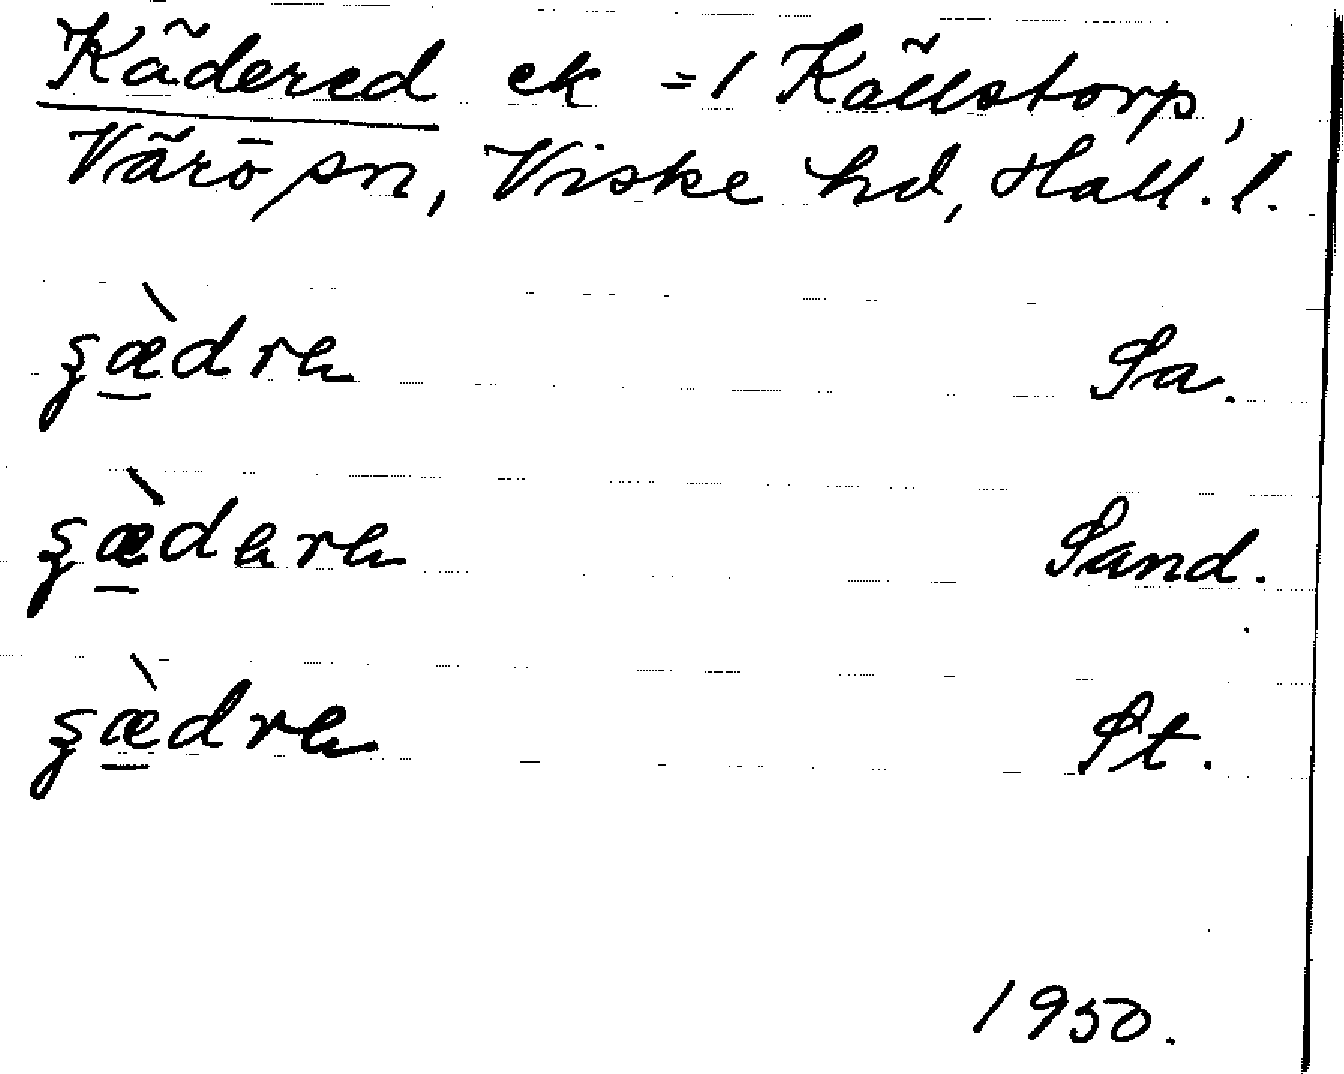 Kädered ek =1 Källstorp,
Värö sn, Viske hd, Hall. l.
ʒæ̀drɐ Sa.
ʒæ̀dɐrɐ Sand.
ʒæ̀drɐ St.
1950.